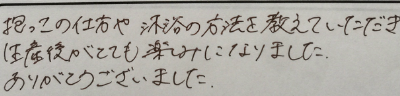 抱っこの仕方や 沐浴の方法を教えていただき
生産後がとても楽しみになりました。
ありがとうございました。